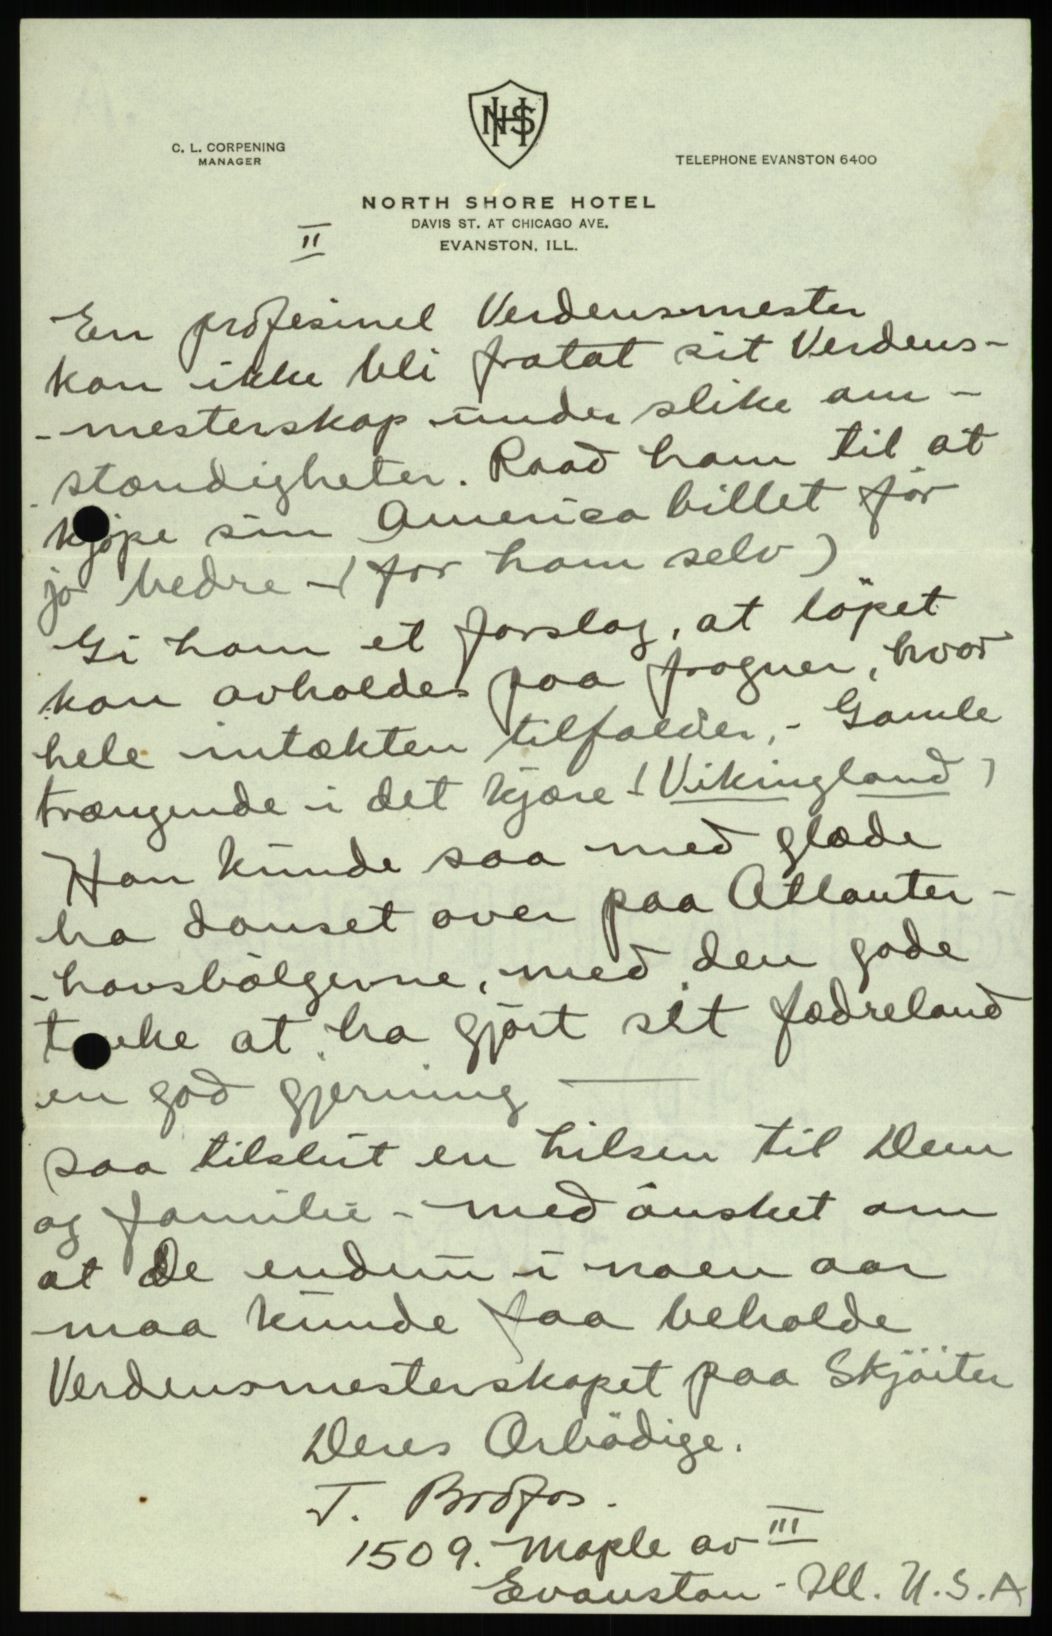 C. L. CORPENING
MANAGER
NHS
TELEPHONE EVANSTON 6400
NORTH SHORE HOTEL
DAVIS ST. AT CHICAGO AVE.
EVANSTON, ILL.
II
En profesinel Verdensmester
kan ikke bli fratat sit Verdens-
-mesterskap under slike om-
stændigheter. Raad ham til at
kjøpe sin America billet før
jo bedre - (for ham selv)
Gi ham et forslag, at löpet
kan avholdes paa frogner, hvor
hele intækten tilfalder, - Gamle
trængende i det kjære (Vikingland)
Han kunde saa med glæde
ha danset over paa Atlanter-
-havsbölgerne, med den gode
tanke at ha gjört sit fædreland
en god gjerning —
saa tilslut en hilsen til Dem
og familie - med önsket om
at De endnu i noen aar
maa kunde faa beholde
Verdensmesterskapet paa Skjöiter
Deres Ærbödige.
T. Brodfos.
1509. Maple av III
Evanston - Ill. U.S.A